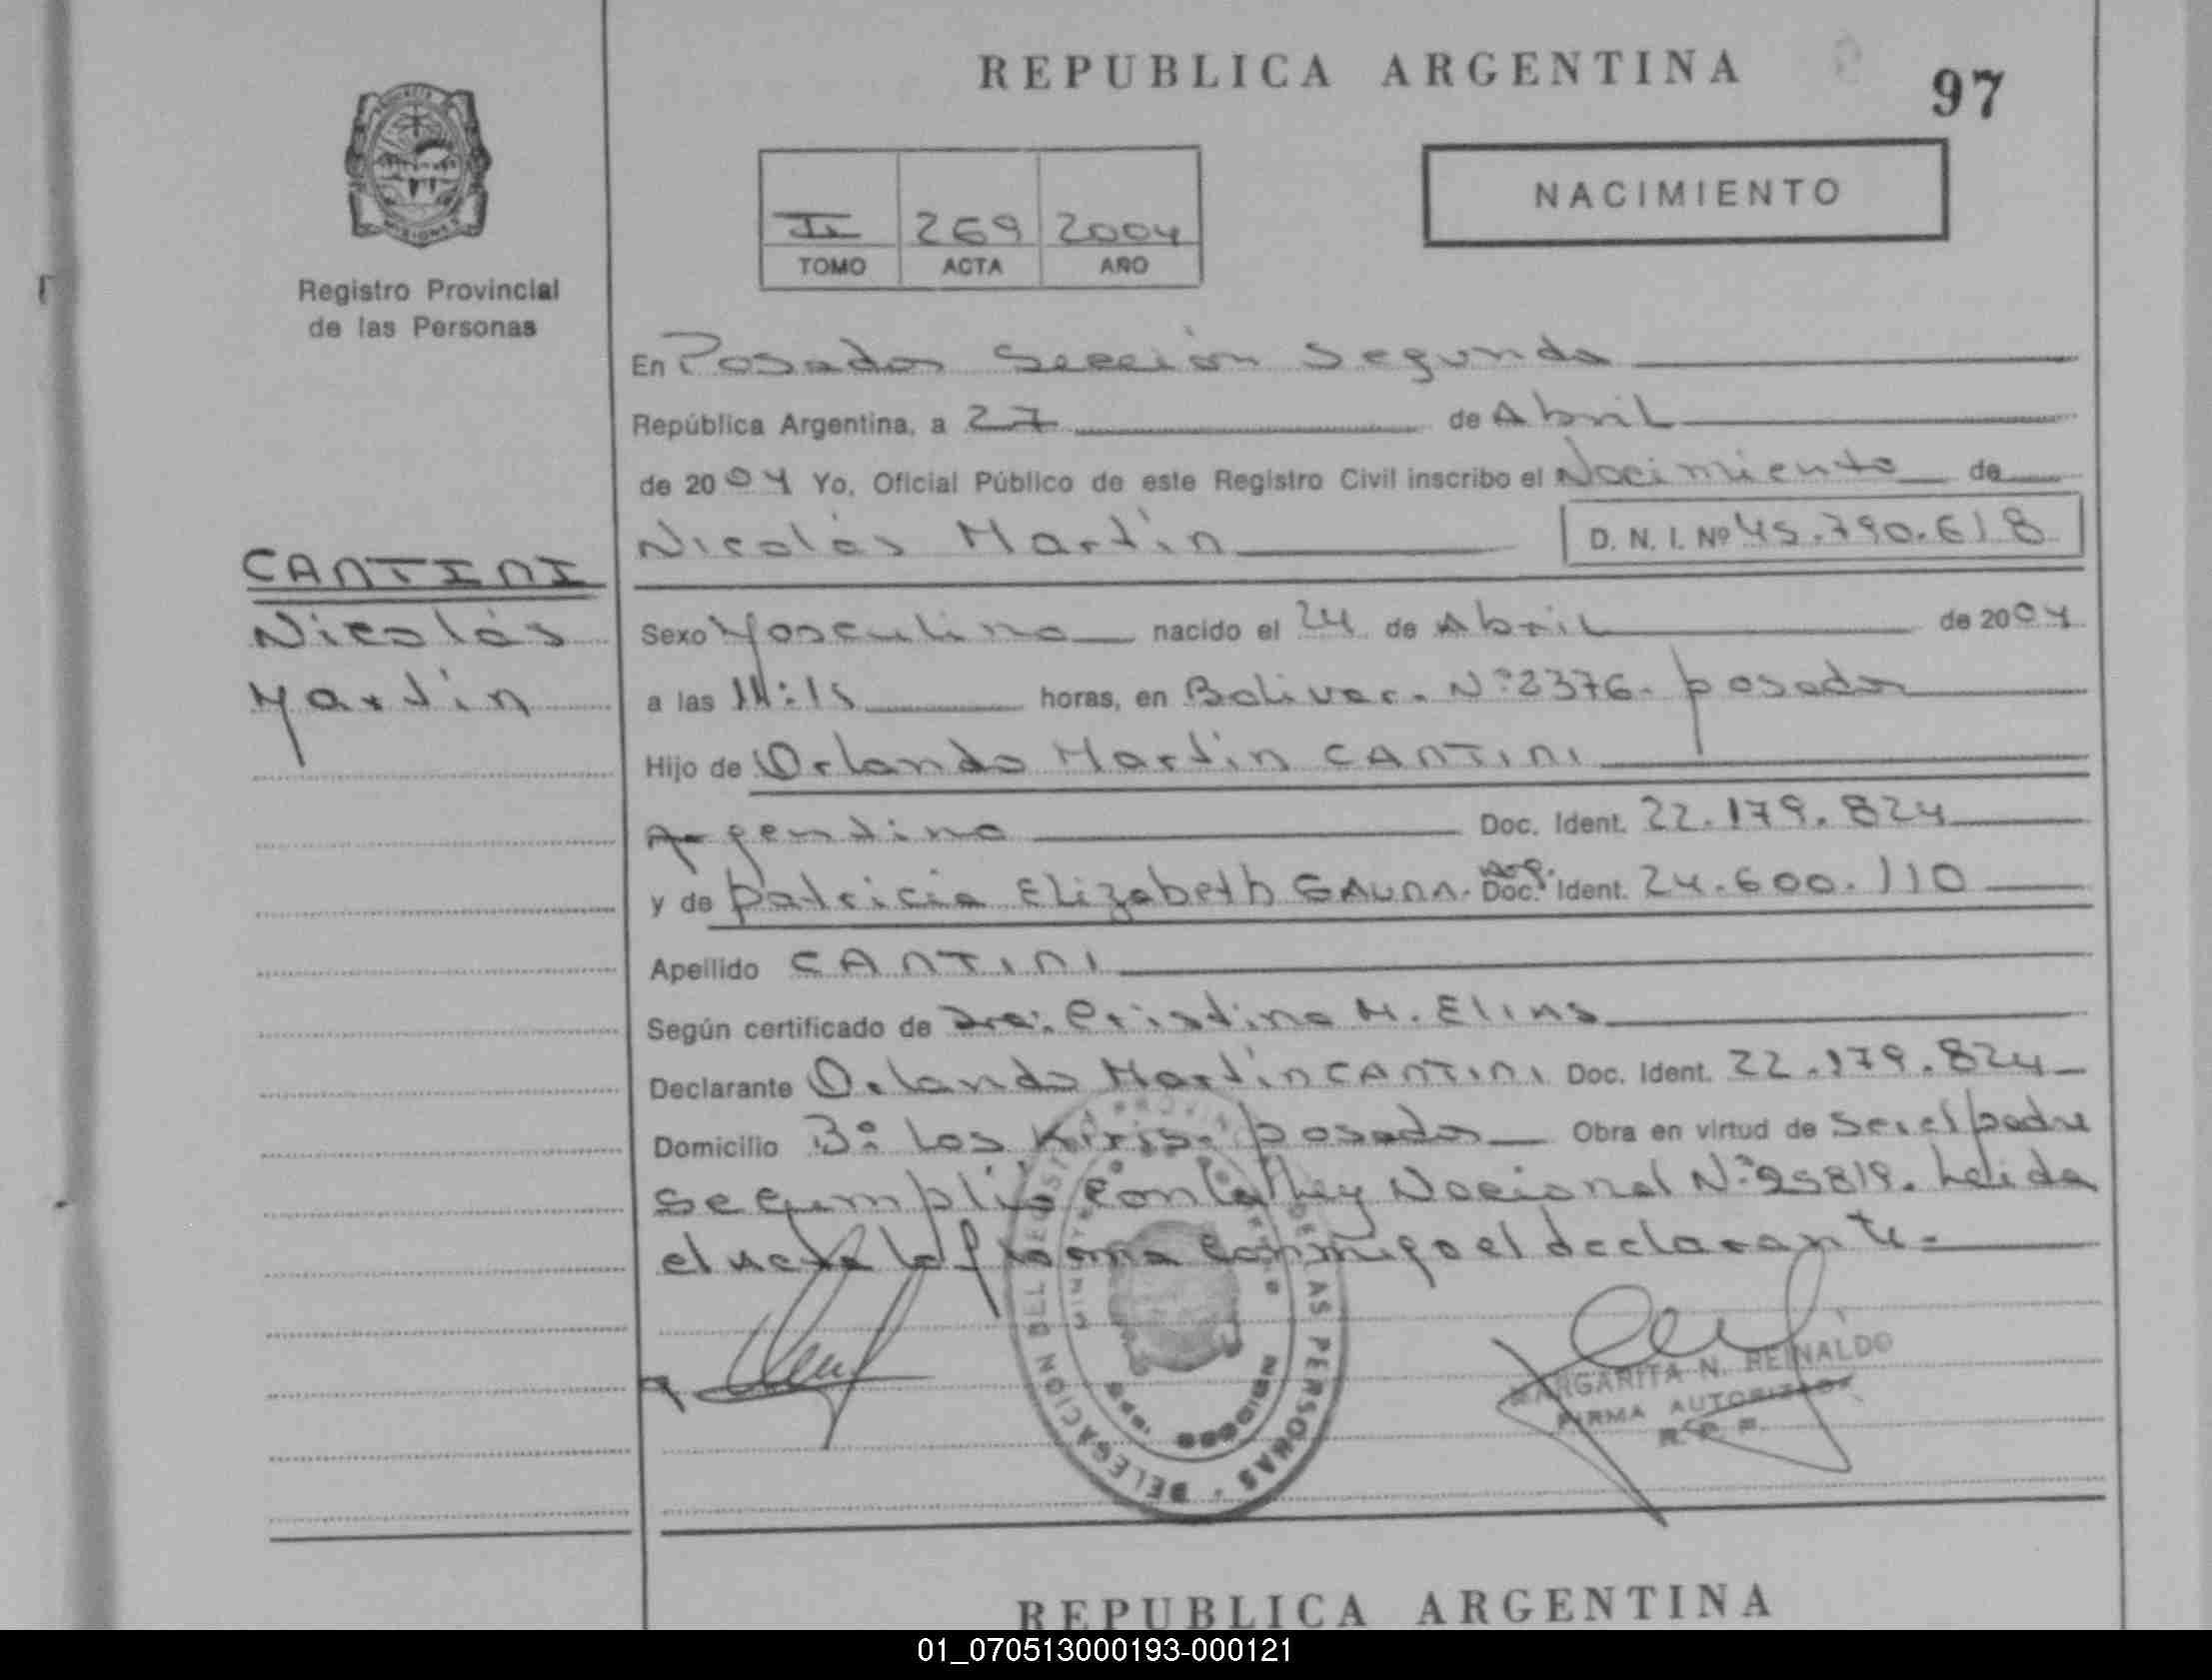 REPUBLICA ARGENTINA
97
NACIMIENTO
269 2004
TOMO ACTA AÑO
Registro Provincial
de las Personas
En Posadas Sección Segunda
República Argentina, a 27 de Abril
de 2004 Yo, Oficial Público de este Registro Civil inscribo el Nacimiento de
Nicolás Martín D. N. I. Nº 45.790.618
CANTINI
Nicolás
Martín
Sexo Masculino nacido el 24 de Abril de 2004
a las 11:15 horas, en Bolivar. Nº 2376. posadas
Hijo de Orlando Martín CANTINI
Argentino Doc. Ident. 22.179.824
y de patricia Elizabeth GAUNA. Arg. Doc. Ident. 24.600.110
Apellido CANTINI
Según certificado de Dra: Cristina M. Elias
Declarante Orlando Martín CANTINI Doc. Ident. 22.179.824
Domicilio Bº Los Kiris. posadas Obra en virtud de ser el padre
se cumplió con la Ley Nacional Nº 25819. Leida
el acta la firma conmigo el declarante.
DELEGACION DEL REGISTRO PROVINCIAL DE LAS PERSONAS
MARGARITA N. REINALDO
FIRMA AUTORIZADA
R. P. P.
REPUBLICA ARGENTINA
01_070513000193-000121